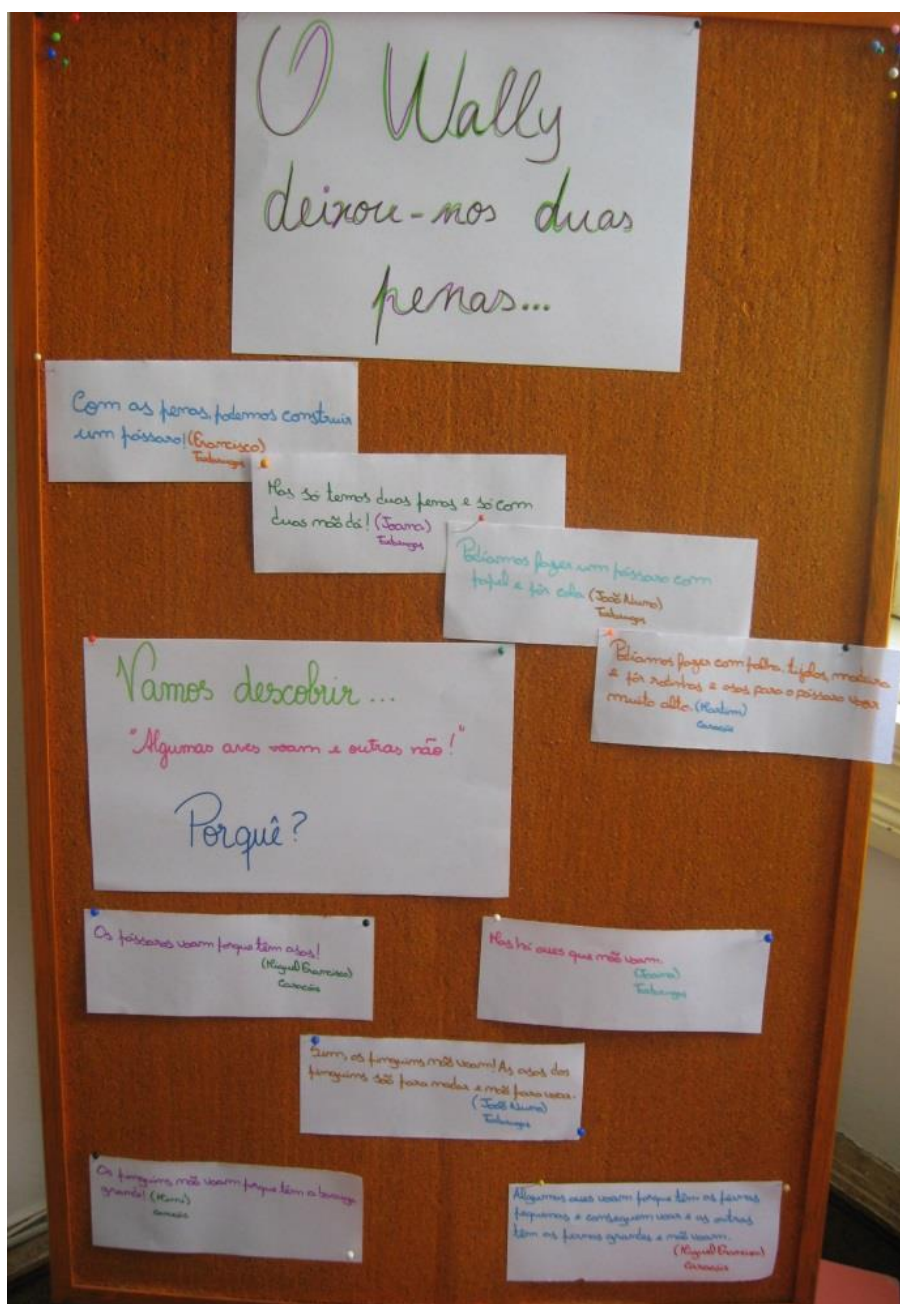 O Wally
deixou-nos duas
penas...
Com as penas, podemos construir
um pássaro! (Francisco)
Mas só temos duas penas e só com
duas não dá! (Joana)
Podíamos fazer um pássaro com
papel e pôr cola (João Nuno)
Podíamos fazer com palha, tijolos, madeira
e pôr rodinhas e asas para o pássaro voar
muito alto. (Martim)
Caracóis
Vamos descobrir...
"Algumas aves voam e outras não!"
Porquê?
Os pássaros voam porque têm asas!
(Miguel Francisco)
Caracóis
Mas há aves que não voam.
(Joana)
Sim, os pinguins não voam! As asas dos
pinguins são para nadar e não para voar.
(João Nuno)
Os pinguins não voam porque têm a barriga
grande!
Caracóis
Algumas aves voam porque têm as pernas
pequenas e conseguem voar e as outras
têm as pernas grandes e não voam.
(Miguel Francisco)
Caracóis